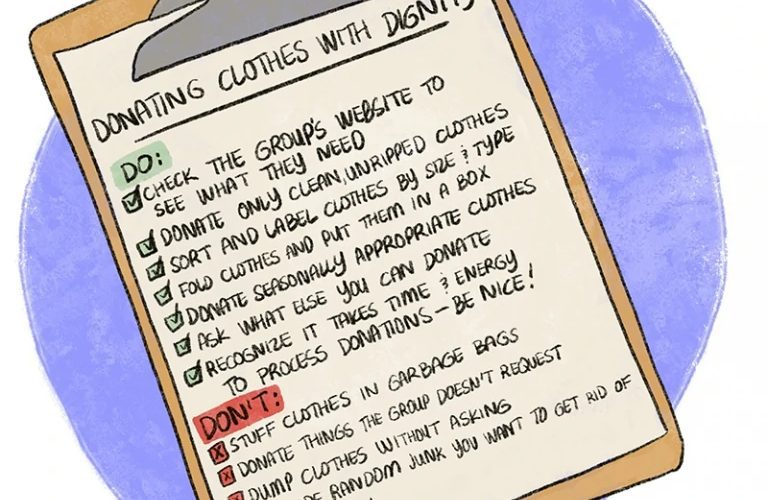 DONATING CLOTHES WITH DIGNITY
DO:
CHECK THE GROUP'S WEBSITE TO
SEE WHAT THEY NEED
DONATE ONLY CLEAN, UNRIPPED CLOTHES
SORT AND LABEL CLOTHES BY SIZE & TYPE
FOLD CLOTHES AND PUT THEM IN A BOX
DONATE SEASONALLY APPROPRIATE CLOTHES
ASK WHAT ELSE YOU CAN DONATE
RECOGNIZE IT TAKES TIME & ENERGY
TO PROCESS DONATIONS - BE NICE!
DON'T:
STUFF CLOTHES IN GARBAGE BAGS
DONATE THINGS THE GROUP DOESN'T REQUEST
DUMP CLOTHES WITHOUT ASKING
RANDOM JUNK YOU WANT TO GET RID OF